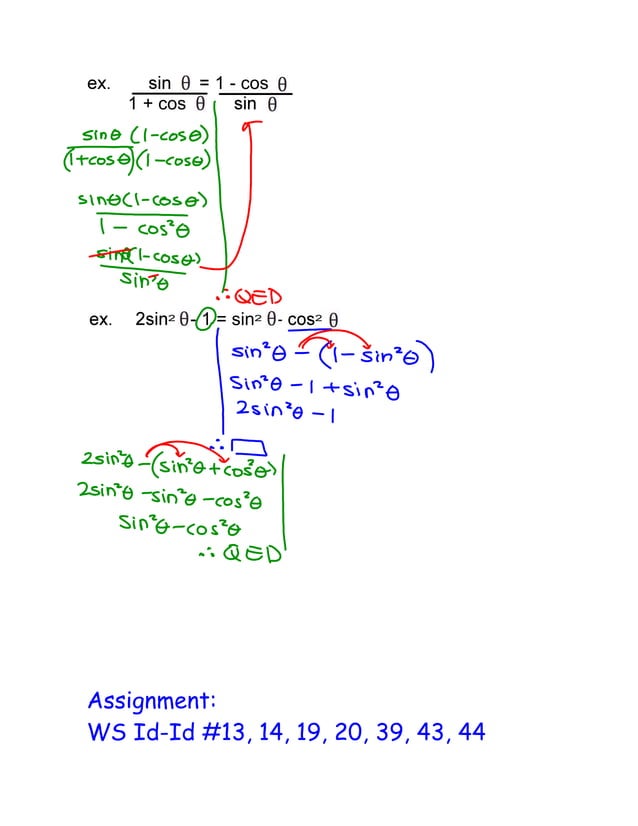 ex. sin θ = 1 - cos θ
1 + cos θ sin θ
sinθ (1-cosθ)
(1+cosθ)(1-cosθ)
sinθ(1-cosθ)
1 - cos²θ
sinθ(1-cosθ)
sin²θ
∴ QED
ex. 2sin² θ- 1 = sin² θ- cos² θ
sin²θ - (1 - sin²θ)
sin²θ - 1 + sin²θ
2sin²θ - 1
∴ ▭
2sin²θ - (sin²θ + cos²θ)
2sin²θ - sin²θ - cos²θ
sin²θ - cos²θ
∴ QED
Assignment:
WS Id-Id #13, 14, 19, 20, 39, 43, 44